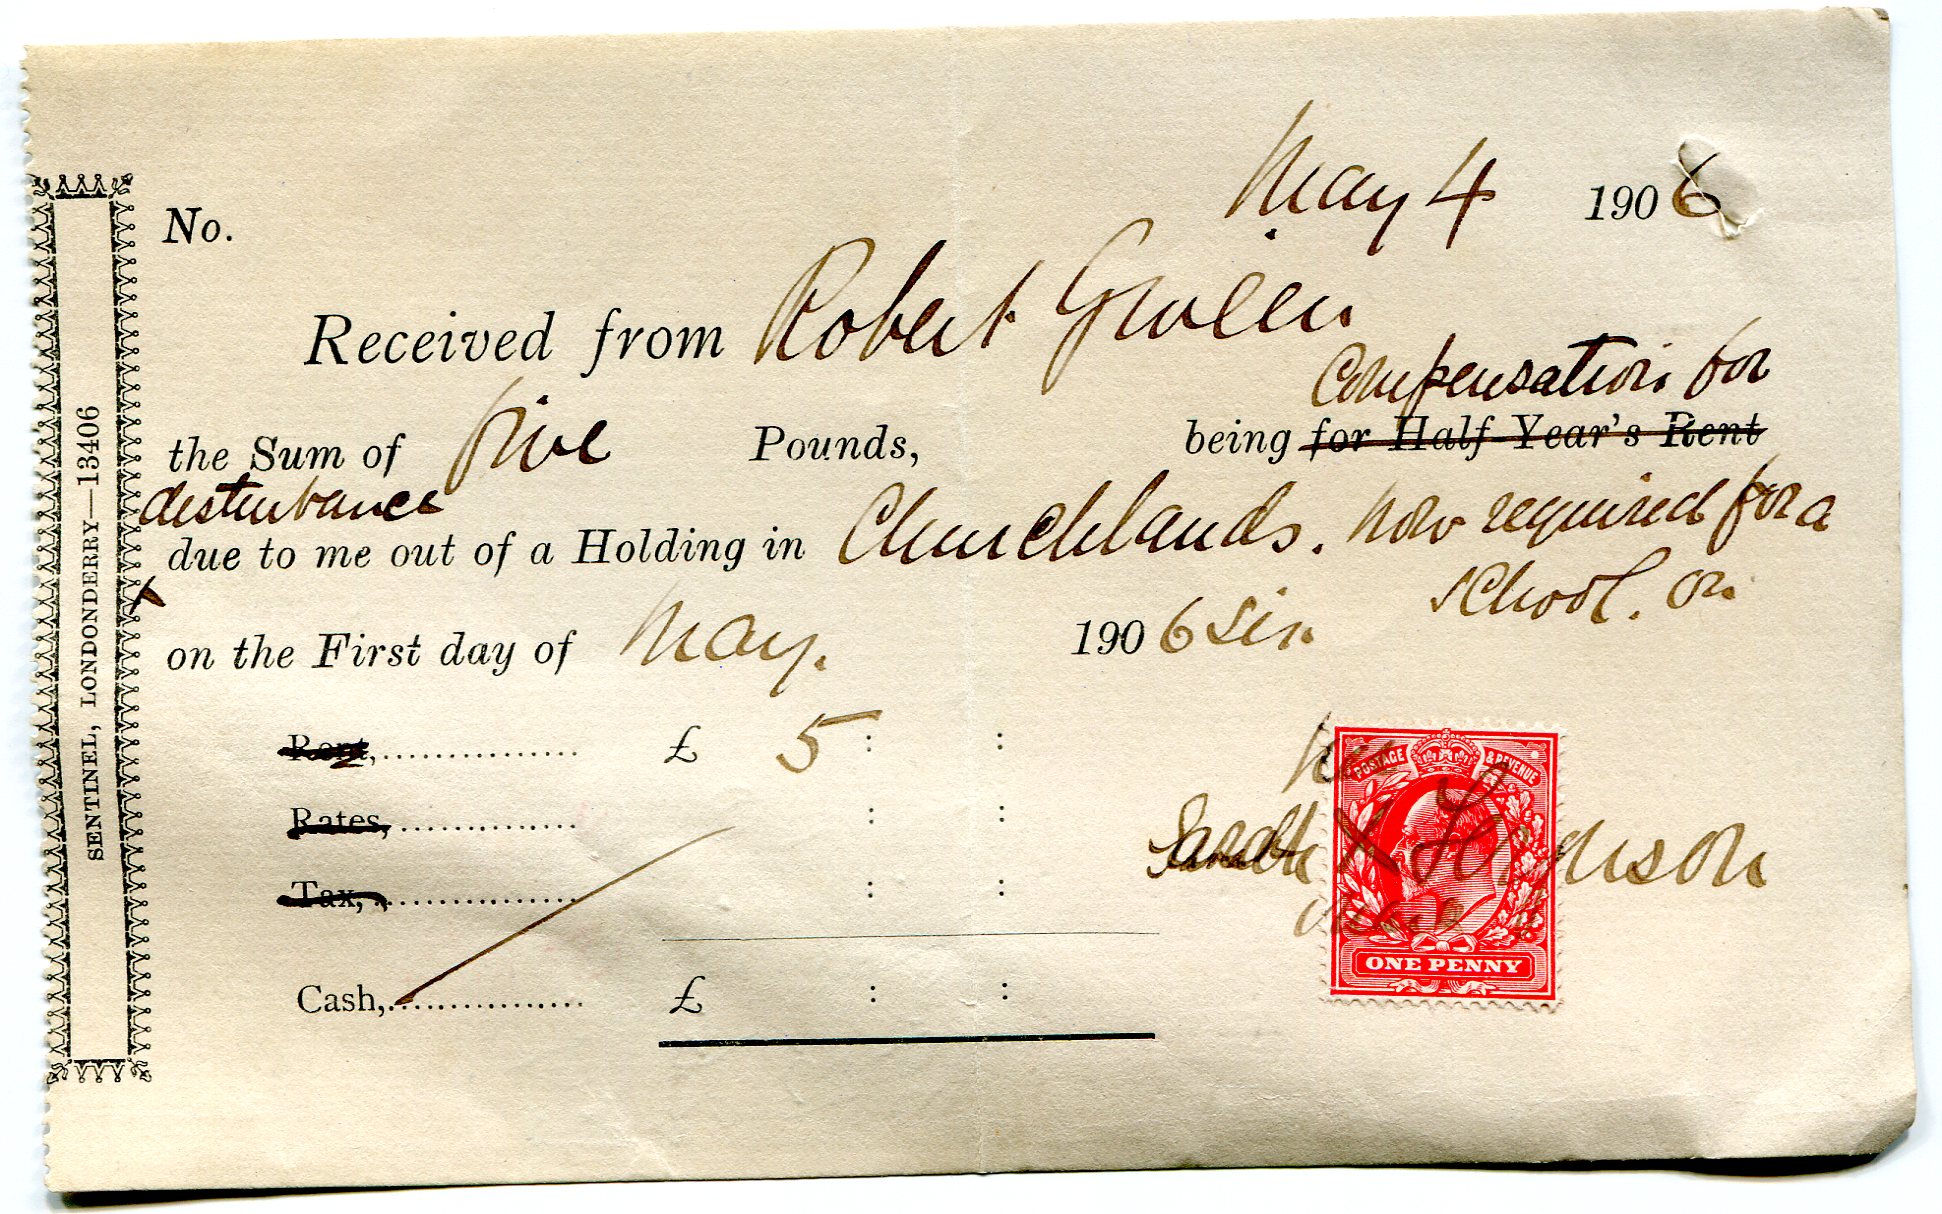 May 4 1906
No.
Received from Robert Green
Compensation for
the Sum of five Pounds, being for Half-Year's Rent
disturbance
due to me out of a Holding in Churchlands. now required for a
school. on
on the First day of May. 1906 six.
Rent, £ 5 : :
Rates, : :
Tax, : :
Cash, £ : :
her
Sarah X Ferguson
mark
POSTAGE & REVENUE
ONE PENNY
SENTINEL, LONDONDERRY—13406